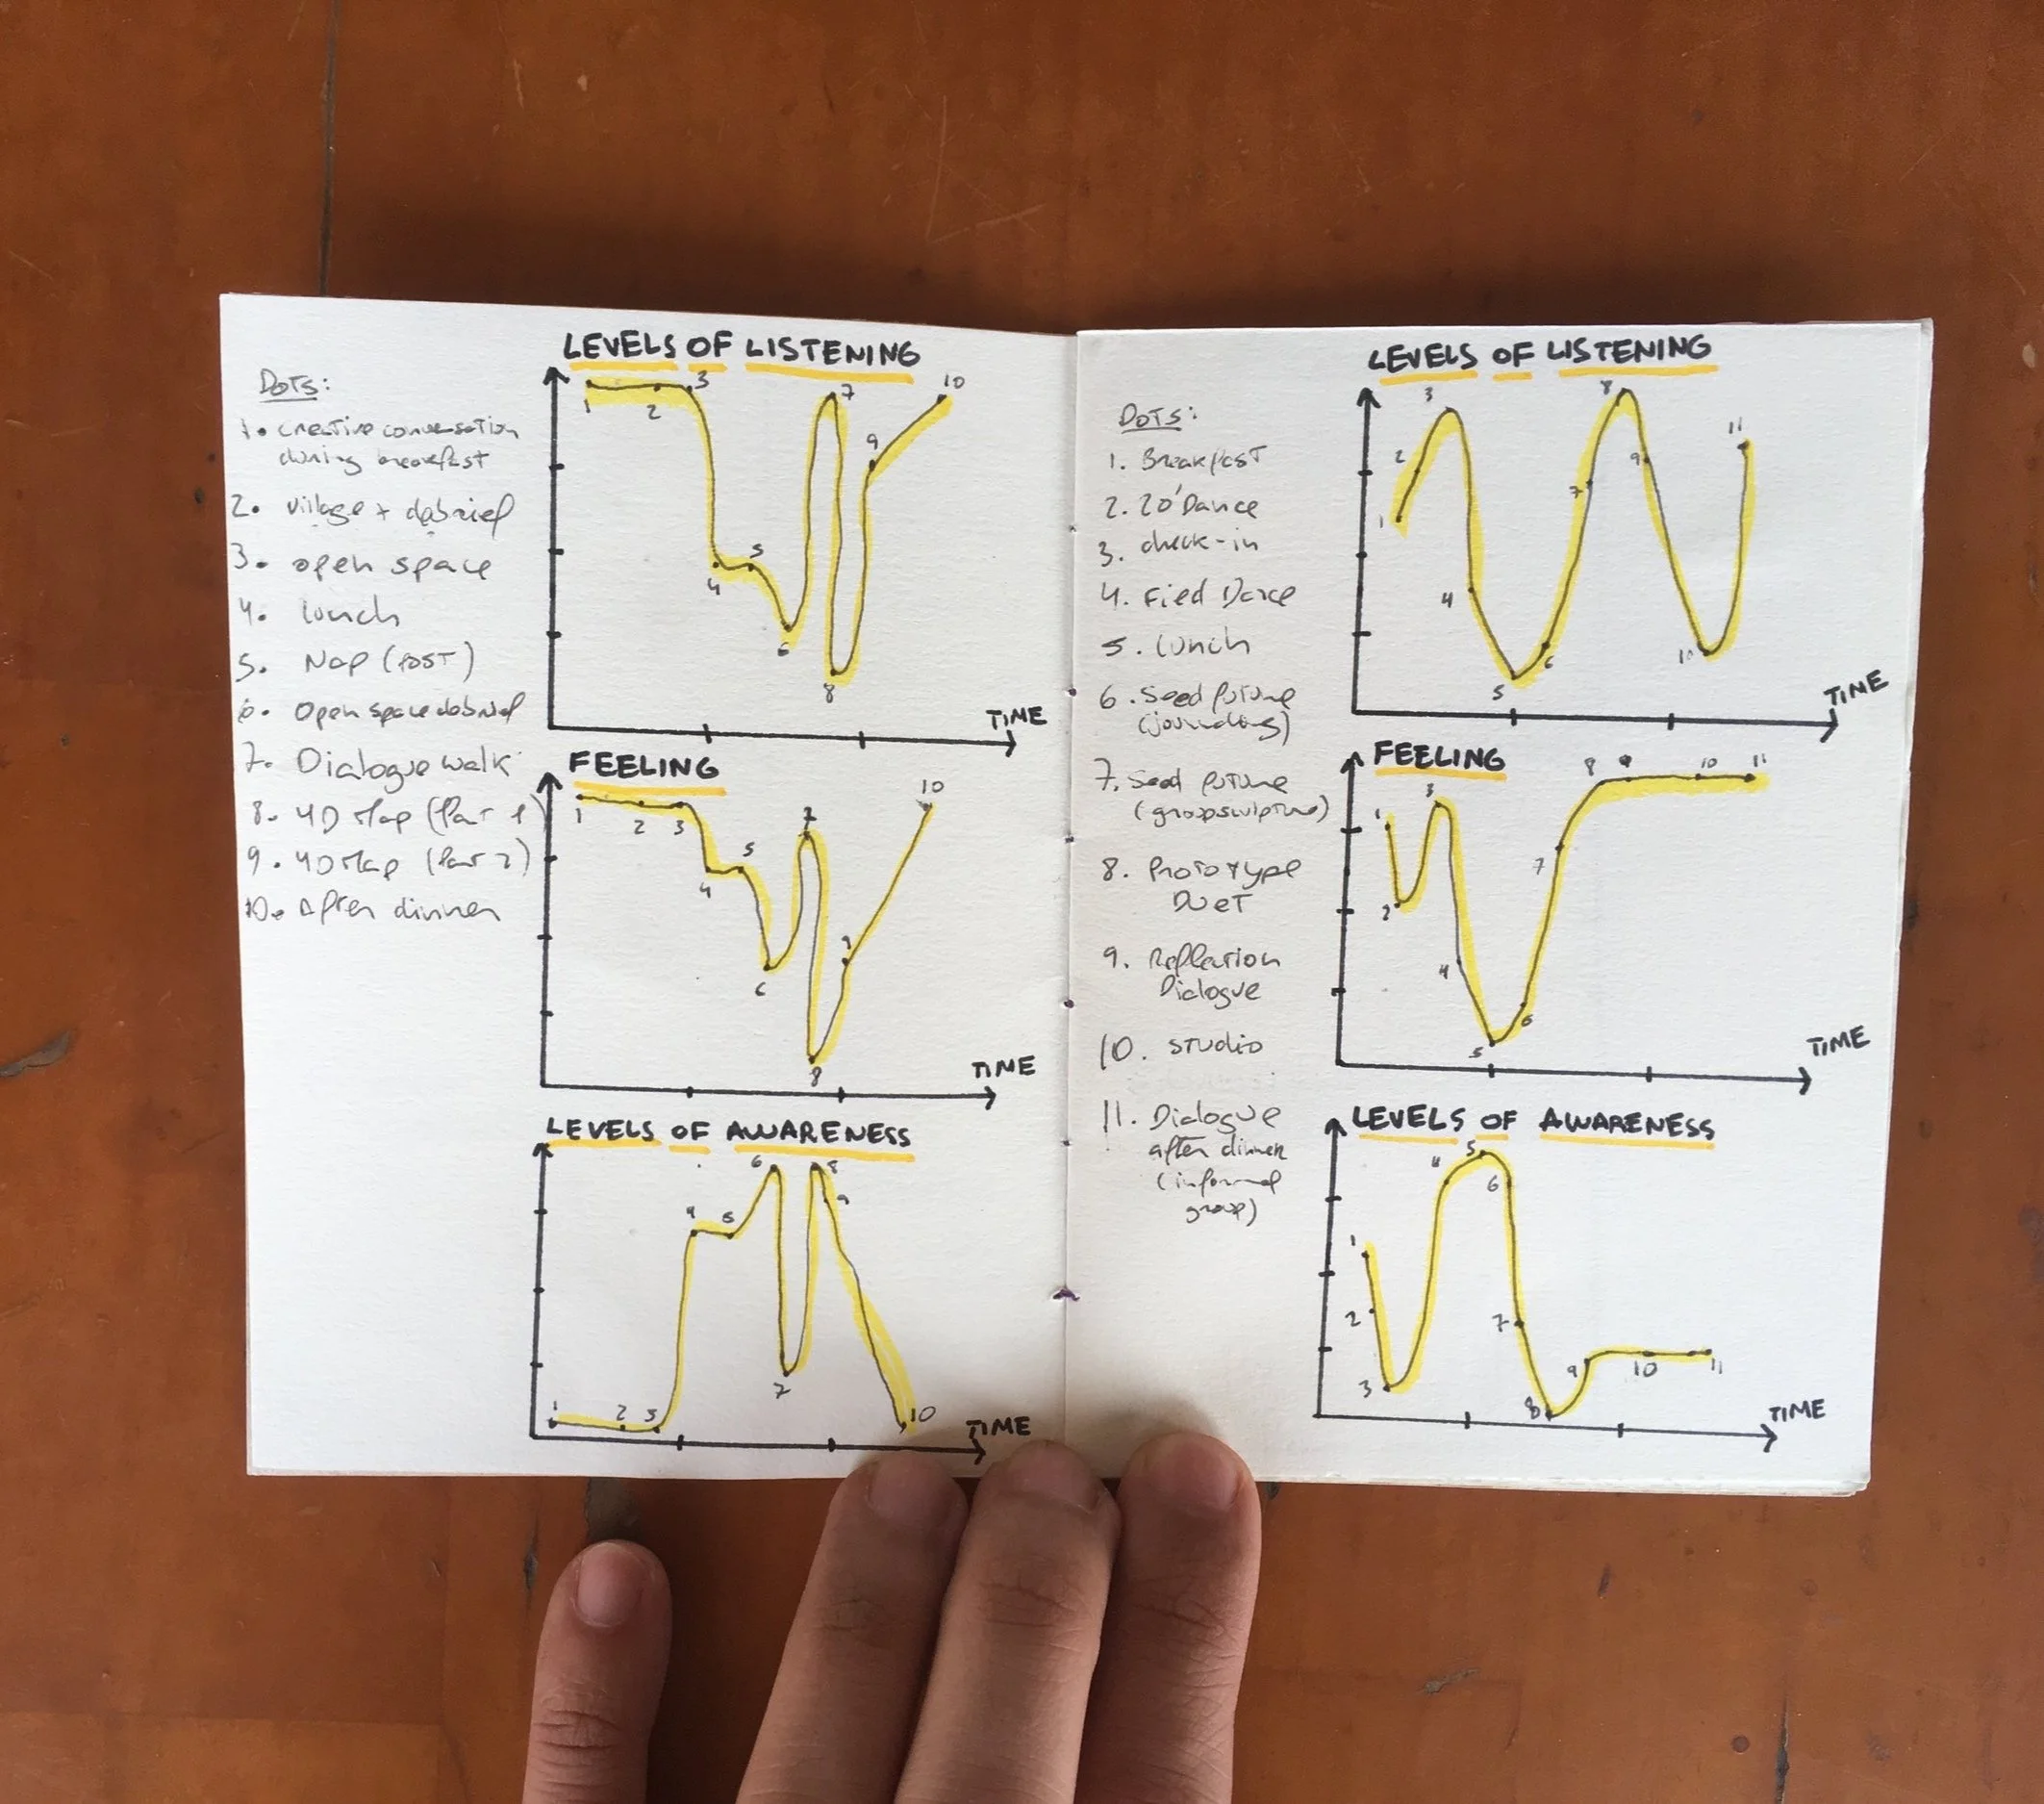 DOTS:
1. creative conversation
during breakfast
2. village + debrief
3. open space
4. lunch
5. Nap (POST)
6. Open space debrief
7. Dialogue walk
8. 4D Map (Part 1)
9. 4D Map (Part 2)
10. After dinner
LEVELS OF LISTENING
1
2
3
4
5
6
7
8
9
10
TIME
FEELING
1
2
3
4
5
6
7
8
9
10
TIME
LEVELS OF AWARENESS
1
2
3
4
5
6
7
8
9
10
TIME
DOTS:
1. Breakfast
2. 20' Dance
3. check-in
4. Fied Dance
5. lunch
6. Seed future
(journaling)
7. Seed future
(groopsculpture)
8. Prototype
DUET
9. Reflection
Dialogue
10. STUDIO
11. Dialogue
after dinner
(informal
group)
LEVELS OF LISTENING
1
2
3
4
5
6
7
8
9
10
11
TIME
FEELING
1
2
3
4
5
6
7
8
9
10
11
TIME
LEVELS OF AWARENESS
1
2
3
4
5
6
7
8
9
10
11
TIME